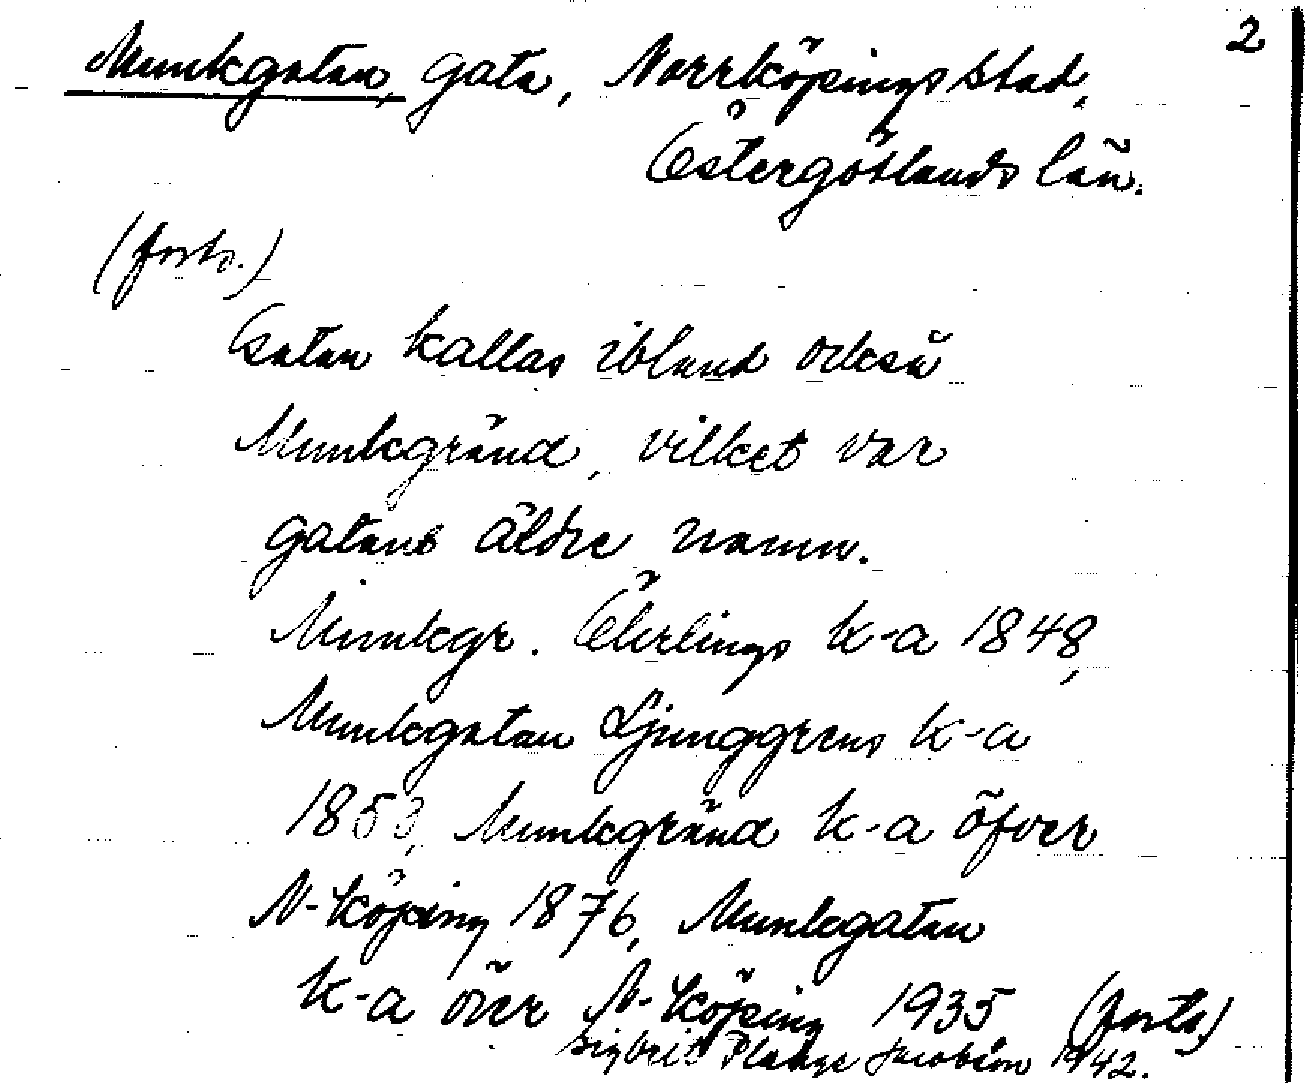 2
Munkgatan, gata, Norrköpings stad,
Östergötlands län.
(forts.)
Gatan kallas ibland också
Munkgränd, vilket var
gatans äldre namn.
Munkgr. Öhrlings k-a 1848,
Munkgatan Ljunggrens k-a
1853, Munkgränd k-a öfver
N-köping 1876, Munkgatan
k-a över N-köping 1935 (forts.)
Sigbrit Plænge Jacobson 1942.